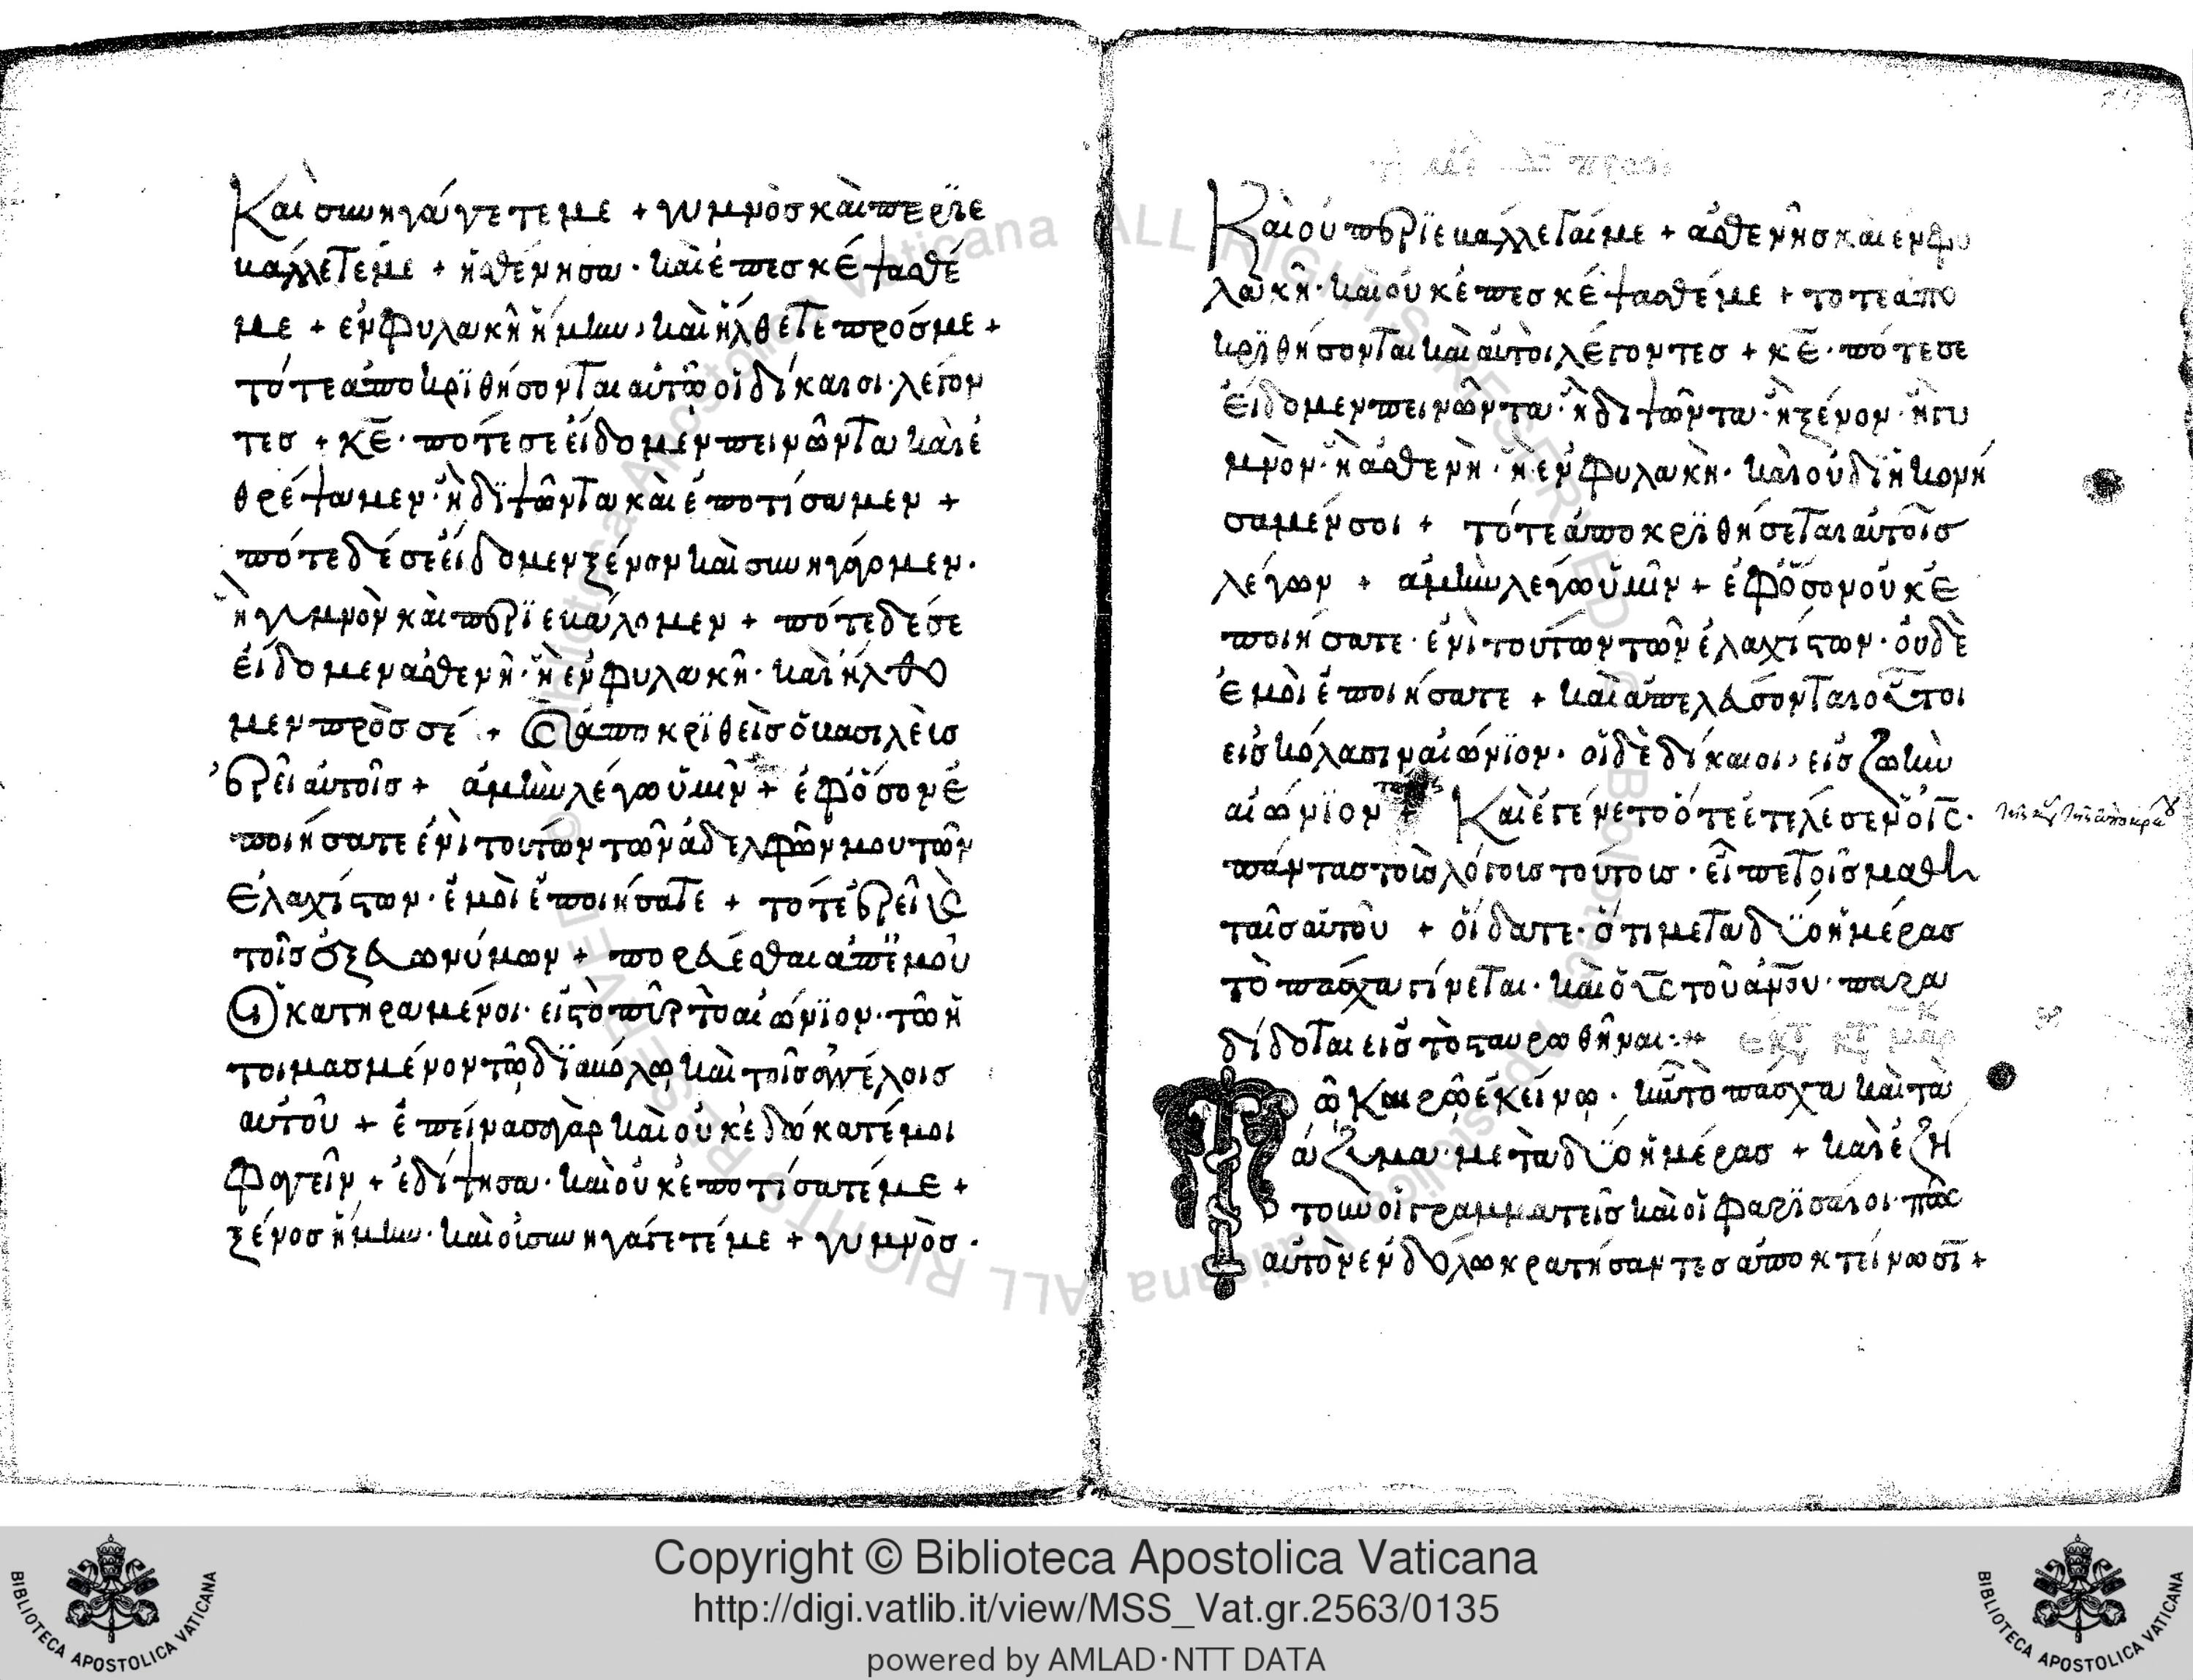 Καὶ συνηγάγετε με + γυμνὸσ καὶ περϊε
καλλετέμε + ἠσθένησα · καὶ ἐπεσκέψασθέ
με + ἐν φυλακῆ ἤμην, καὶ ἤλθετε πρόσμε +
τότε ἀποκρϊθήσονται αὐτῶ οἱ δίκαιοι · λέγον
τεσ + κε̅ · πότέ σε εἴδομεν πεινῶντα καὶ ἐ
θρέψαμεν · ἢ δϊψῶντα καὶ ἐποτίσαμεν +
πότε δέ σε εἴδομεν ξένον καὶ συνηγάγομεν ·
ἢ γυμνὸν καὶ περϊεκάλομεν + πότε δέ σε
εἴδομεν ἀσθενῆ · ἢ ἐν φυλακῆ · καὶ ἤλθο
μεν πρὸσ σέ + Καὶ ἀποκρϊθεὶσ ὁ κασιλὲισ
ἐρεῖ αὐτοῖσ + ἀμὴν λέγω ὑμῖν + ἐφόσον ἐ
ποιήσατε ἑνὶ τουτων τῶν ἀδελφῶν μου τῶν
ἐλαχίστων · ἐμὸὶ ἐποιήσατε + τότε ἐρεῖ καὶ
τοῖσ ἐξ εὐωνύμων + πορεύεσθαι ἀπ ἐμοῦ
οἱ κατηραμένοι · εἰς τὸ πῦρ τὸ αἰώνϊον · τῶ ἡ
τοιμασμένον τῶ δϊακόλω καὶ τοῖσ ἀγγέλοισ
αὐτοῦ + ἐπείνασα γὰρ καὶ οὐκ ἐδώκατέ μοι
φαγεῖν + ἐδίψησα · καὶ οὐκ ἐποτίσατέ με +
ξένοσ ἤμην · καὶ οὐ συνηγάγετέ με + γυμνὸσ ·
Καὶ οὐ περϊεκάλλεταί με + ἀσθενῆσ καὶ ἐν φυ
λακῆ · καὶ οὐκ ἐπεσκέψασθέ με + τοτε ἀπο
κρϊθήσονται καὶ αὐτοὶ λέγοντεσ + κε̅ · πότε σε
εἴδομεν πεινῶντα · ἢ διψῶντα · ἢ ξένον · ἢ γυ
μνὸν · ἢ ἀσθενῆ · ἢ ἐν φυλακὴ · καὶ οὐ δϊηκονή
σαμέν σοι + τότε ἀποκρϊθήσεται αὐτοῖσ
λέγων + ἀμὴν λέγω ὑμῖν + ἐφόσον οὐκ ἐ
ποιήσατε · ἑνὶ τουτων τῶν ἐλαχίστων · οὐδὲ
ἐμοὶ ἐποιήσατε + καὶ ἀπελεύσονται οὗτοι
εἰσ κόλασιν αἰώνϊον · οἱ δὲ δίκαιοι, εἰσ ζωὴν
αἰώνϊον + Καὶ ἐγένετο ὅτε ἐτέλεσεν ὁ ις̅ ·
πάντασ τοὺσ λόγουσ τούτουσ · εἶπε τοῖσ μαθη
ταῖσ αὐτοῦ + οἴδατε · ὅτι μετὰ δύο ἡμέρασ
τὸ πάσχα γίνεται · καὶ ὁ υς̅ τοῦ ἀνου̅ · παρα
δίδοται εἰσ τὸ σταυρωθῆναι :+
Τῶ καιρῶ ἐκείνω · ἦν τὸ πάσχα καὶ τὰ
ἄζυμα · μετὰ δύο ἡμέρασ + καὶ ἐζή
τουν οἱ γραμματεῖσ καὶ οἱ φαρϊσαῖοι · πῶσ
αὐτὸν ἐν δόλω κρατήσαντεσ ἀποκτείνωσϊ +
Biblioteca Apostolica Vaticana ALL RIGHTS RESERVED ©
Copyright © Biblioteca Apostolica Vaticana
http://digi.vatlib.it/view/MSS_Vat.gr.2563/0135
powered by AMLAD·NTT DATA
BIBLIOTECA APOSTOLICA VATICANA
BIBLIOTECA APOSTOLICA VATICANA